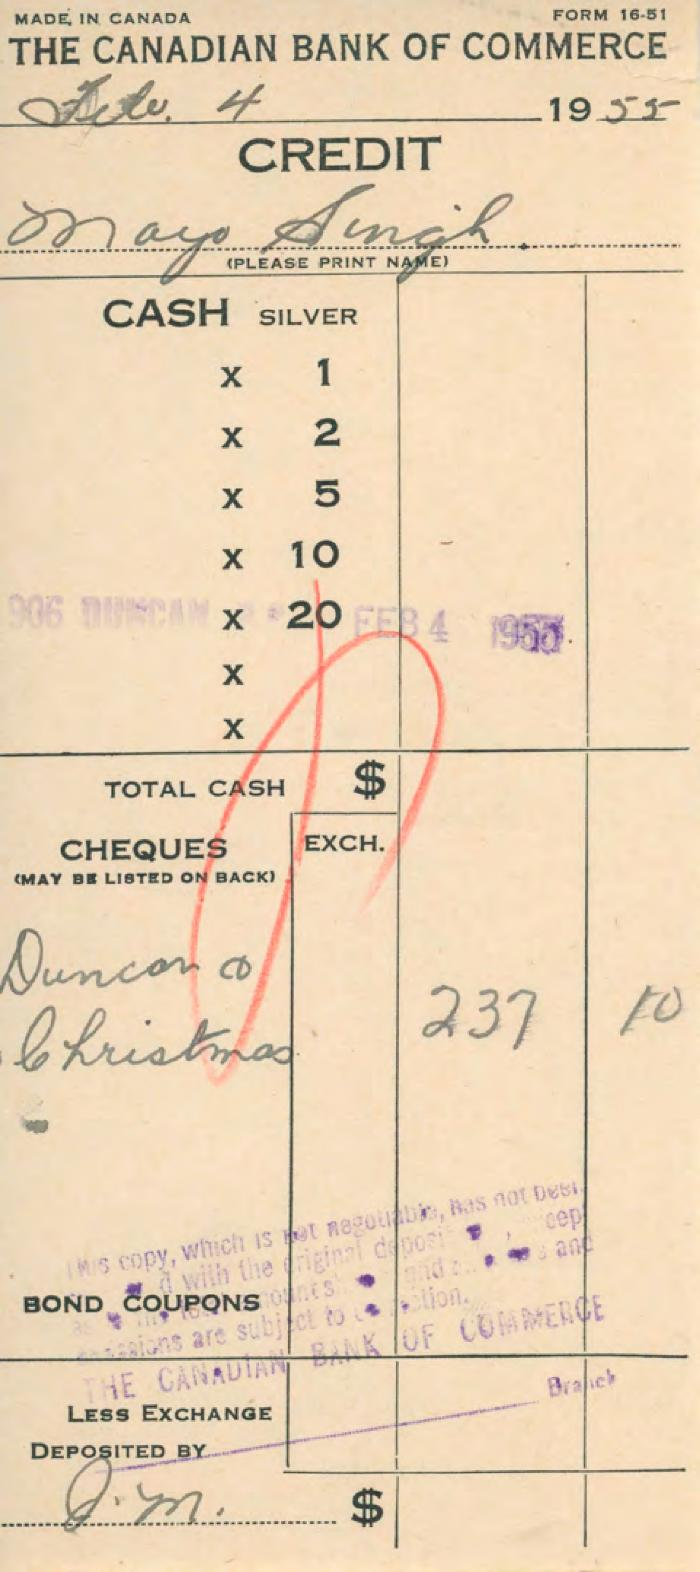 MADE IN CANADA FORM 16-51
THE CANADIAN BANK OF COMMERCE
Feb. 4 1955
CREDIT
Mayo Singh.
(PLEASE PRINT NAME)
CASH SILVER
x 1
x 2
x 5
x 10
906 DUNCAN FEB 4 1955
x 20
x
x
TOTAL CASH $
CHEQUES EXCH.
(MAY BE LISTED ON BACK)
Duncan
Christmas 237 10
This copy, which is not negotiable, has not been
with the original deposit
and
BOND COUPONS
are subject to
THE CANADIAN BANK OF COMMERCE
Branch
LESS EXCHANGE
DEPOSITED BY
J.M. $